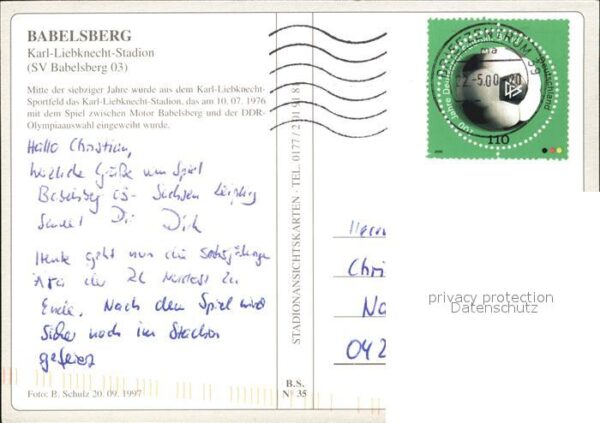 BABELSBERG
Karl-Liebknecht-Stadion
(SV Babelsberg 03)
Mitte der siebziger Jahre wurde aus dem Karl-Liebknecht-
Sportfeld das Karl-Liebknecht-Stadion, das am 10. 07. 1976
mit dem Spiel zwischen Motor Babelsberg und der DDR-
Olympiaauswahl eingeweiht wurde.
Hallo Christian,
herzliche Grüße vom Spiel
Babelsberg 03 - Sachsen Leipzig
sendet Dir Dirk
Heute geht nun die sechsjährige
Ära der RL Nordost zu
Ende. Nach dem Spiel wird
sicher noch im Stadion
gefeiert
Foto: B. Schulz 20. 09. 1997
B.S.
Nº 35
STADIONANSICHTSKARTEN · TEL. 0177 /
BRIEFZENTRUM 39
22.-5.00-20
Deutschland
DFB
110
Herrn
Chri
Na
042
privacy protection
Datenschutz